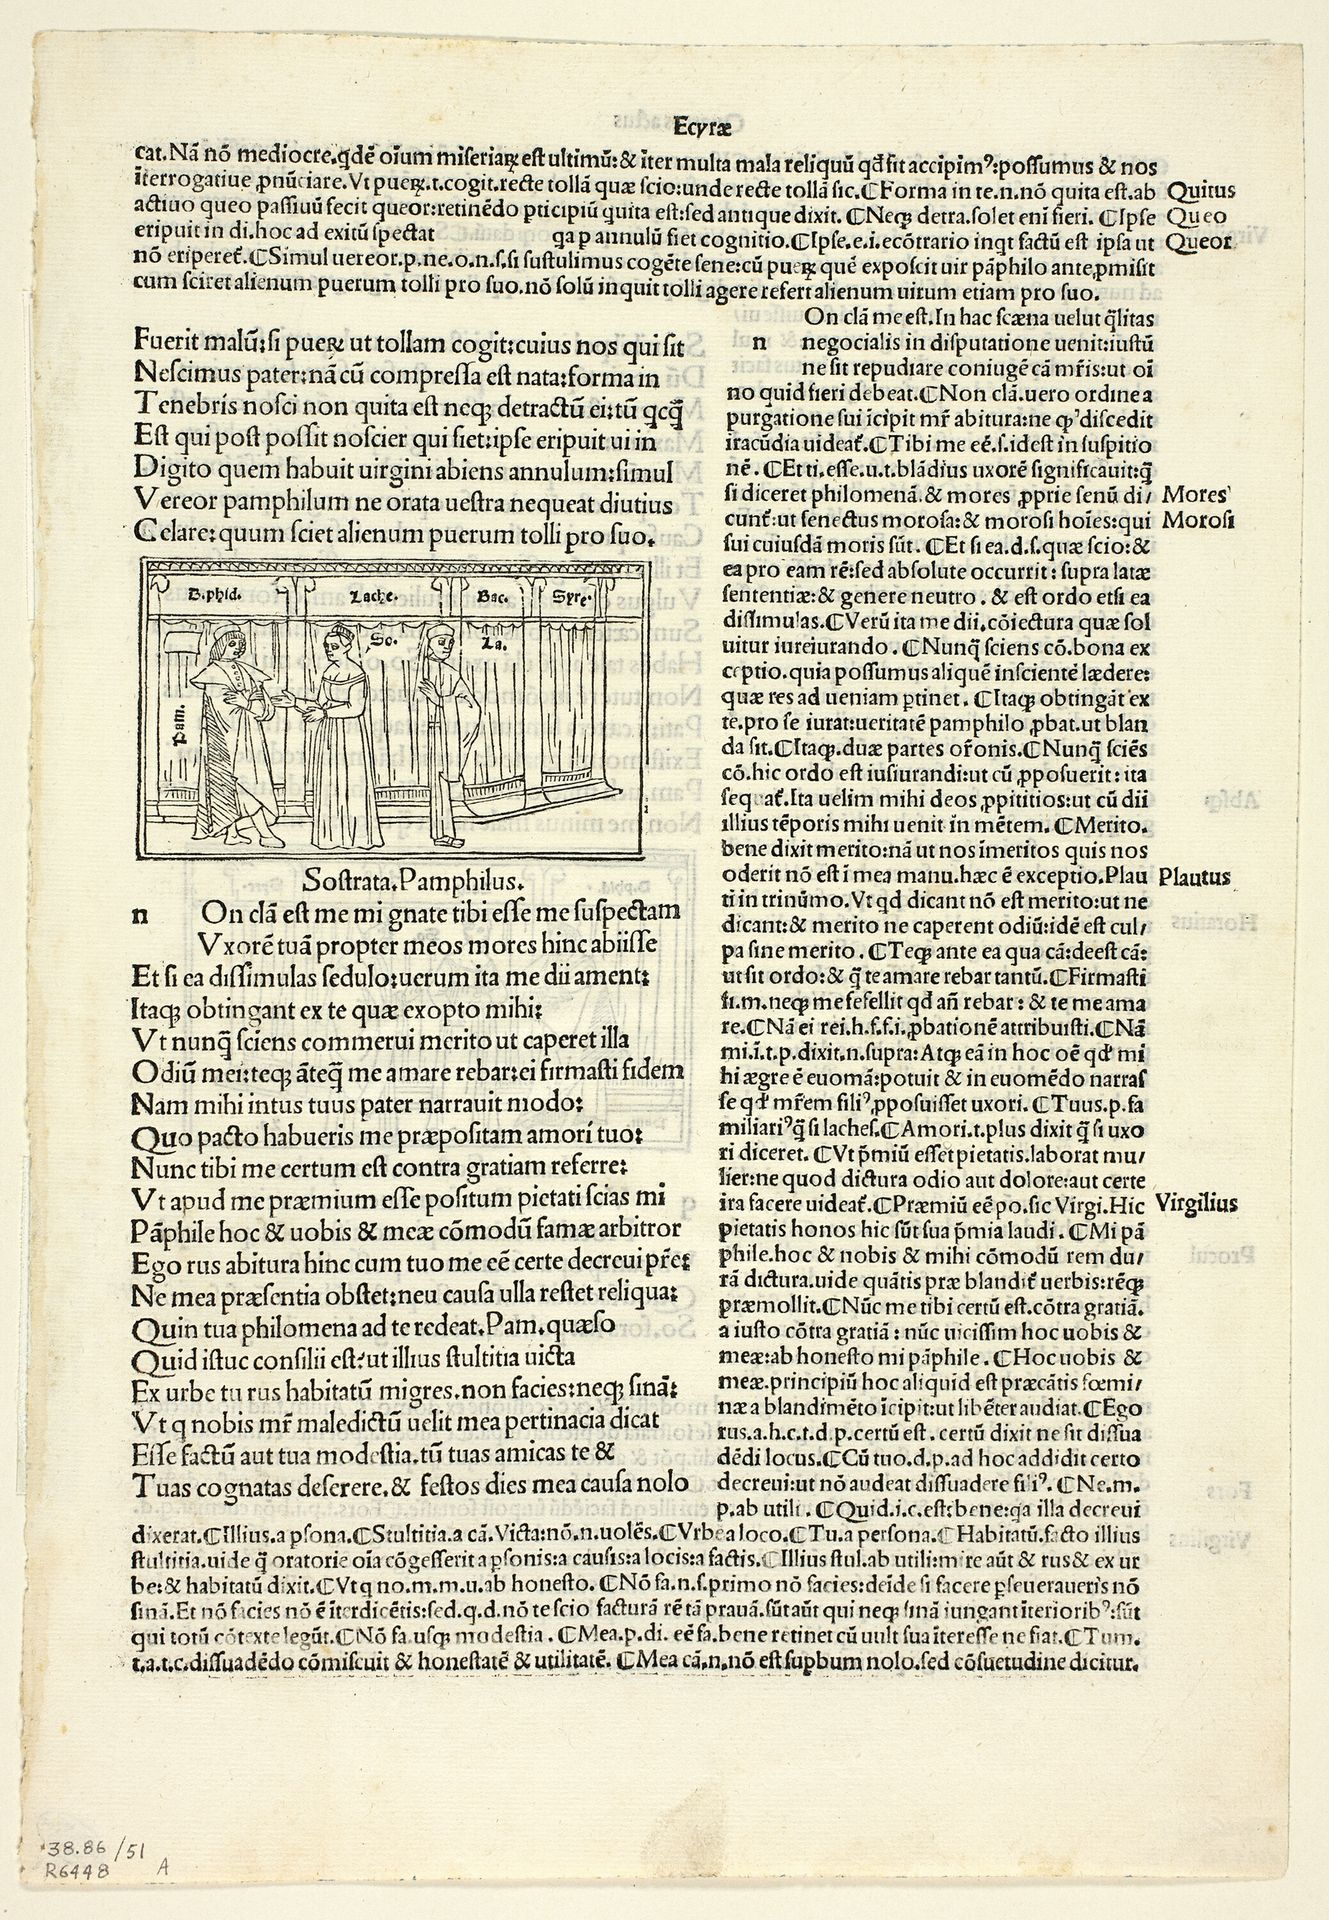 Ecyræ
cat. Nā nō mediocre. qdē oīum miseriaꝝ est ultimū: & īter multa mala reliquū qđ sit accipimꝰ: possumus & nos
īterrogatiue ꝓnūciare. Vt pueꝝ. t. cogit. recte tollā quæ scio: unde recte tollā sic. ₵Forma in te. n. nō quita est. ab
actiuo queo passiuū fecit queor: retinēdo pticipiū quita est: sed antique dixit. ₵Neqꝫ detra. solet enī fieri. ₵Ipse
eripuit in di. hoc ad exitū spectat qa p annulū fiet cognitio. ₵Ipse. e. i. ecōtrario inqt factū est ipsa ut
nō eriperet̄. ₵Simul uereor. p. ne. o. n. s. si sustulimus cogēte sene: cū pueꝝ quē exposcit uir pāphilo ante ꝓmisit
cum sciret alienum puerum tolli pro suo. nō solū inquit tolli agere refert alienum uirum etiam pro suo.
Quitus
Queo
Queor
Fuerit malū: si pueꝝ ut tollam cogit: cuius nos qui sit
Nescimus pater: nā cū compressa est nata: forma in
Tenebris nosci non quita est neqꝫ detractū ei: tū qcq̄
Est qui post possit noscier qui siet: ipse eripuit ui in
Digito quem habuit uirgini abiens annulum: simul
Vereor pamphilum ne orata uestra nequeat diutius
Celare: quum sciet alienum puerum tolli pro suo.
D. phid.
Lache.
Bac.
Syre.
So.
La.
Pam.
Sostrata. Pamphilus.
n On clā est me mi gnate tibi esse me suspectam
Vxorē tuā propter meos mores hinc abiisse
Et si ea dissimulas sedulo: uerum ita me dii ament:
Itaqꝫ obtingant ex te quæ exopto mihi:
Vt nunq̄ sciens commerui merito ut caperet illa
Odiū mei: teqꝫ āteq̄ me amare rebar: ei firmasti fidem
Nam mihi intus tuus pater narrauit modo:
Quo pacto habueris me præpositam amori tuo:
Nunc tibi me certum est contra gratiam referre:
Vt apud me præmium esse positum pietati scias mi
Pāphile hoc & uobis & meæ cōmodū famæ arbitror
Ego rus abitura hinc cum tuo me eē certe decreui pr̄e:
Ne mea præsentia obstet: neu causa ulla restet reliqua:
Quin tua philomena ad te redeat. Pam. quæso
Quid istuc consilii est? ut illius stultitia uicta
Ex urbe tu rus habitatū migres. non facies: neqꝫ sinā:
Vt q nobis mr̄ maledictū uelit mea pertinacia dicat
Esse factū aut tua modestia. tū tuas amicas te &
Tuas cognatas deserere. & festos dies mea causa nolo
On clā me est. In hac scæna uelut q̄litas
n negocialis in disputatione uenit: iustū
ne sit repudiare coniugē cā mr̄is: ut oī
no quid fieri debeat. ₵Non clā. uero ordine a
purgatione sui īcipit mr̄ abitura: ne qꝰ discedit
iracūdia uideat̄. ₵Tibi me eē. s. idest in suspitio
nē. ₵Et ti. esse. u. t. blādius uxorē significauit: q̄
si diceret philomenā. & mores ꝓprie senū di/
cunt̄: ut senectus morosa: & morosi hoīes: qui
sui cuiusdā moris sūt. ₵Et si ea. d. s. quæ scio: &
ea pro eam rē: sed absolute occurrit: supra latæ
sententiæ: & genere neutro. & est ordo etsi ea
dissimulas. ₵Verū ita me dii, cōiectura quæ sol
uitur iureiurando. ₵Nunq̄ sciens cō. bona ex
ceptio. quia possumus aliquē inscientē lædere:
quæ res ad ueniam ꝑtinet. ₵Itaqꝫ obtingāt ex
te. pro se iurat: ueritatē pamphilo ꝓbat. ut blan
da sit. ₵Itaqꝫ. duæ partes or̄onis. ₵Nunq̄ sciēs
cō. hic ordo est iusiurandi: ut cū ꝓposuerit: ita
sequat̄. Ita uelim mihi deos ꝓpititios: ut cū dii
illius tēporis mihi uenit in mētem. ₵Merito.
bene dixit merito: nā ut nos īmeritos quis nos
oderit nō est ī mea manu. hæc ē exceptio. Plau
ti in trinūmo. Vt qđ dicant nō est merito: ut ne
dicant: & merito ne caperent odiū: idē est cul/
pa sine merito. ₵Teqꝫ ante ea qua cā: deest cā:
ut sit ordo: & q̄ te amare rebar tantū. ₵Firmasti
fi. m. neqꝫ me fefellit qđ an̄ rebar: & te me ama
re. ₵Nā ei rei. h. f. f. i. ꝓbationē attribuisti. ₵Nā
mi. ī. t. p. dixit. n. supra: Atqꝫ eā in hoc oē qđ mi
hi ægre ē euomā: potuit & in euomēdo narras
se qđ mr̄em filiꝰ ꝓposuisset uxori. ₵Tuus. p. fa
miliariꝰ q̄ si laches. ₵Amori. t. plus dixit q̄ si uxo
ri diceret. ₵Vt p̄miū esset pietatis. laborat mu/
lier: ne quod dictura odio aut dolore: aut certe
ira facere uideat̄. ₵Præmiū eē po. sic Virgi. Hic
pietatis honos hic sūt sua p̄mia laudi. ₵Mi pā
phile. hoc & nobis & mihi cōmodū rem du/
rā dictura. uide quātis præ blandit̄ uerbis: rēqꝫ
præmollit. ₵Nūc me tibi certū est. cōtra gratiā.
a iusto cōtra gratiā: nūc uicissim hoc uobis &
meæ: ab honesto mi pāphile. ₵Hoc uobis &
meæ. principiū hoc aliquid est præcātis fœmi/
næ a blandimēto īcipit: ut libēter audiat. ₵Ego
rus. a. h. c. t. d. p. certū est. certū dixit ne sit dissua
dēdi locus. ₵Cū tuo. d. p. ad hoc addidit certo
decreui: ut nō audeat dissuadere filiꝰ. ₵Ne. m.
p. ab utili. ₵Quid. i. c. est: bene: qa illa decreui
Mores
Morosi
Plautus
Virgilius
dixerat. ₵Illius. a psona. ₵Stultitia. a cā. Victa: nō. n. uolēs. ₵Vrbe a loco. ₵Tu. a persona. ₵Habitatū. facto illius
stultitia. uide q̄ oratorie oīa cōgesserit a psonis: a causis: a locis: a factis. ₵Illius stul. ab utili: mire aūt & rus & ex ur
be: & habitatū dixit. ₵Vt q no. m. m. u. ab honesto. ₵Nō fa. n. s. primo nō facies: deīde si facere ꝑseueraueris nō
sinā. Et nō facies nō ē īterdicētis: sed. q. d. nō te scio facturā rē tā prauā. sūt aūt qui neqꝫ sinā iungant īterioribꝰ: sūt
qui totū cōtexte legūt. ₵Nō fa. usqꝫ modestia. ₵Mea. p. di. eē fa. bene retinet cū uult sua īteresse ne fiat. ₵Tum.
t. a. t. c. dissuadēdo cōmiscuit & honestatē & utilitatē. ₵Mea cā. n. nō est supbum nolo. sed cōsuetudine dicitur.
38.86/51
R6448 A